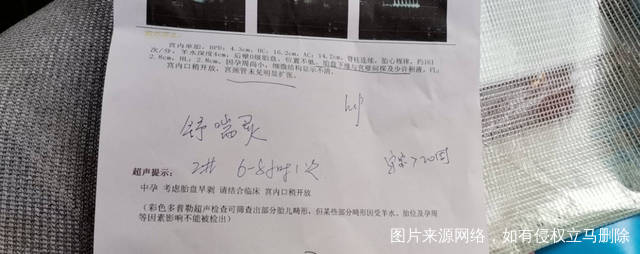 宫内单胎，BPD：4.3cm，HC：16.2cm，AC：14.2cm，脊柱连续，胎心规律，约161
次/分，羊水深度4cm，后壁0级胎盘，位置不低，胎盘下缘与宫壁间探及少许积液，FL：
2.8cm，HL：2.8cm，因孕周尚小，细微结构显示不清。
宫内口稍开放，宫颈管未见明显扩张。
舒喘灵
超声提示：
6-8小时1次
中孕 考虑胎盘早剥 请结合临床 宫内口稍开放
（彩色多普勒超声检查可筛查出部分胎儿畸形，但某些部分畸形因受羊水、胎位及孕周
等因素影响不能被检出）
图片来源网络，如有侵权立马删除